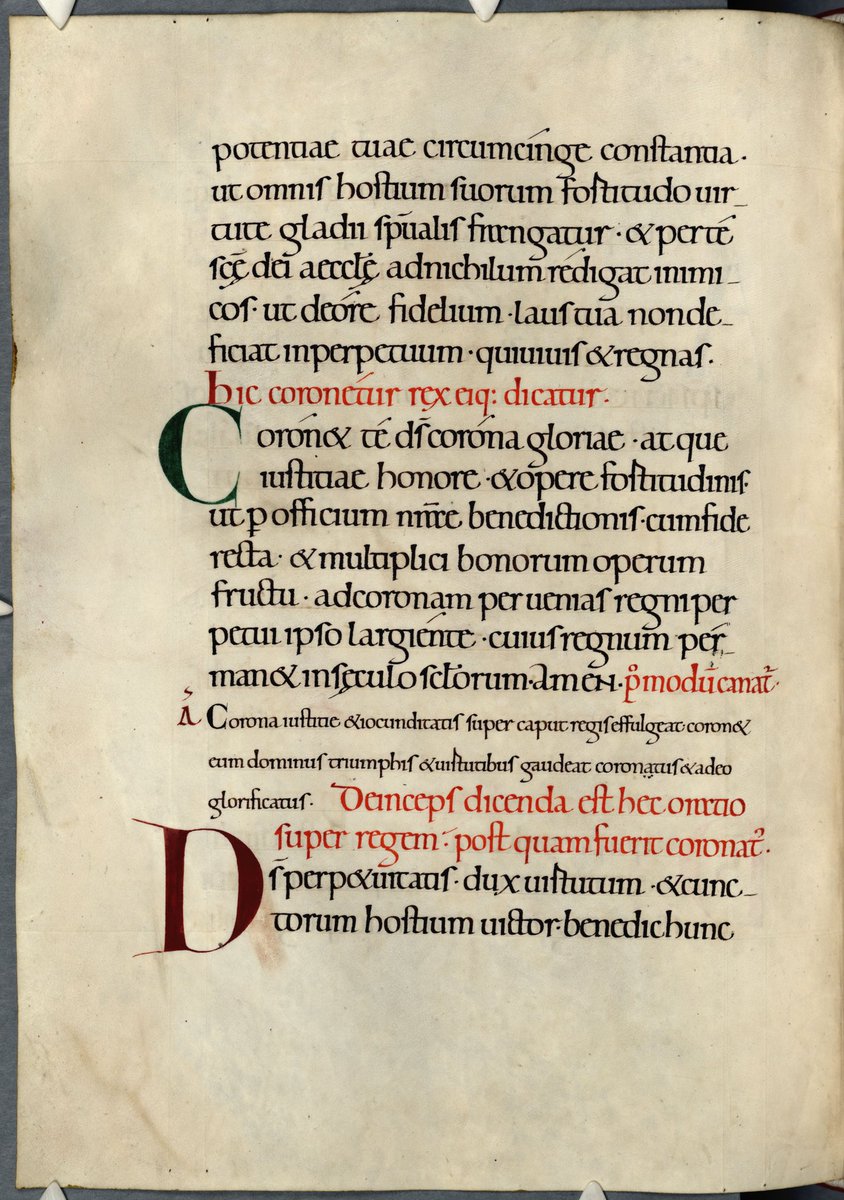 potentiae tuae circumcinge constantia·
ut omnis hostium suorum fortitudo uir-
tute gladii sp̄ualis frangatur· & perte
sc̄ę dei aeccl̄ę adnichilum redigat inimi-
cos· ut decore fidelium· laus tua non de-
ficiat inperpetuum· qui uiuis & regnas·
hic coronetur rex eiq: dicatur·
Coron& te d̄s corona gloriae· atque
iustitiae honore· & opere fortitudinis·
ut ꝑ officium nr̄ae benedictionis· cum fide
recta· & multiplici bonorum operum
fructu· ad coronam peruenias regni per
petui ipso largiente· cuius regnum per-
man& in sęculo scl̄orum· Amen· p̊ modū canat̄·
A Corona iustitie & iocunditatis super caput regis effulgeat coron&
eum dominus triumphis & uirtutibus gaudeat coronatus & a deo
glorificatus· Deinceps dicenda est hec oratio
super regem: post quam fuerit coronat̄·
D̄s perp&uitatis· dux uirtutum· & cunc-
torum hostium uictor· benedic hunc